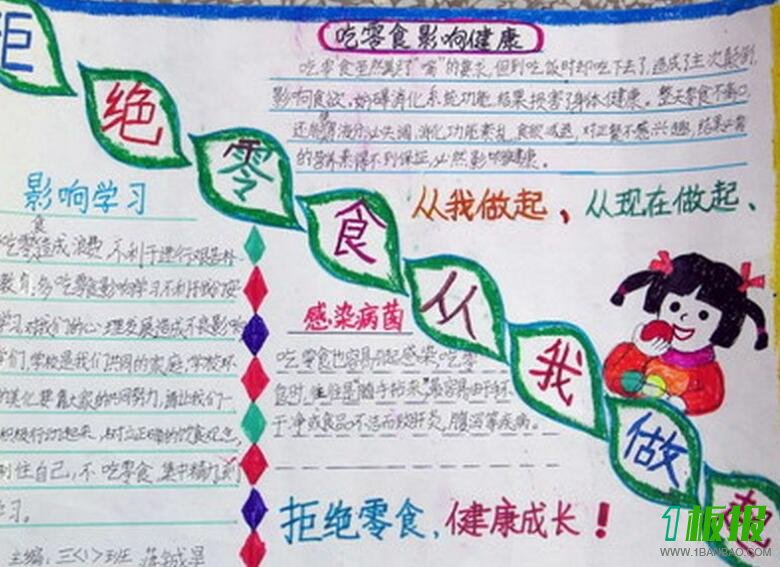 拒绝零食从我做起
吃零食影响健康
吃零食虽然满足了"嘴"的要求,但到吃饭时却吃不下去了,造成了主次颠倒,
影响食欲,妨碍消化系统功能,结果损害了身体健康。整天零食不离口,
还会使胃液分泌失调,消化功能紊乱,食欲减退,对正餐不感兴趣,结果必需
的营养来得不到保证,必然影响健康。
从我做起,从现在做起、
影响学习
吃零食造成浪费,不利于进行艰苦朴
教育,多吃零食影响学习不利于我们安
学习,对我们的心理发展造成不良影响
学们,学校是我们共同的家庭,学校环
的美化要靠大家的共同努力,请让我们一
积极行动起来,树立正确的饮食观念,
到住自己,不吃零食,集中精力,前
学习。
主编:三<1>班
感染病菌
吃零食也容易引起感染,吃零
食时,往往是"随手拈来",最容易由于手
干净或食品不洁而致肝炎,腹泻等疾病。
拒绝零食,健康成长!
1板报
WWW.1BANBAO.COM